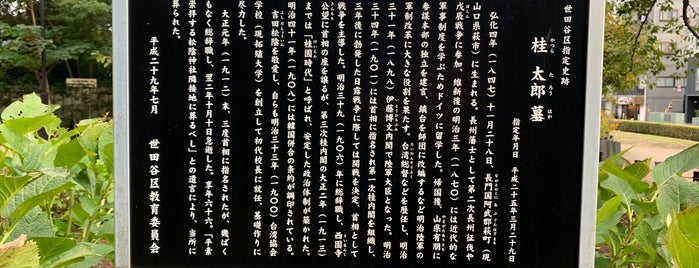 世田谷区指定史跡
桂 太郎 墓
かつら たろう はか
指定年月日 平成二十五年三月二十九日
弘化四年（一八四七）十一月二十八日、長門国阿武郡萩町（現
山口県萩市）に生まれる。長州藩士として第二次長州征伐や
戊辰戦争に参加。維新後の明治三年（一八七〇）には近代的な
軍事制度を学ぶためドイツに留学した。帰国後、山県有朋に
参謀本部の独立を建言、鎮台を師団に改編するなど明治陸軍の
軍制改革に大きな役割を果たす。台湾総督などを歴任し、明治
三十一年（一八九八）伊藤博文内閣で陸軍大臣となった。明治
三十四年（一九〇一）には首相に指名され第一次桂内閣を組織し、
三年後に勃発した日露戦争に際しては開戦を決定、首相として
戦争を主導した。明治三十九（一九〇六）年に総辞職し、西園寺
公望に首相の座を譲るが、第三次桂内閣の大正二年（一九一三）
までは「桂園時代」と呼ばれ、安定した政治体制が築かれた。
明治四十一年（一九〇八）には韓国併合の条約が調印されている。
吉田松陰を敬愛し、自らも明治三十三年（一九〇〇）台湾協会
学校（現拓殖大学）を創立して初代校長に就任、基礎作りに
尽力した。
大正元年（一九一二）末、三度首相に指名されたが、幾ばく
もなく総辞職し、翌二年十月十日急逝した。享年六十六。「平素
崇拝する松陰神社隣接地に葬るべし」との遺言により、当所に
葬られた。
平成二十九年七月
世田谷区教育委員会